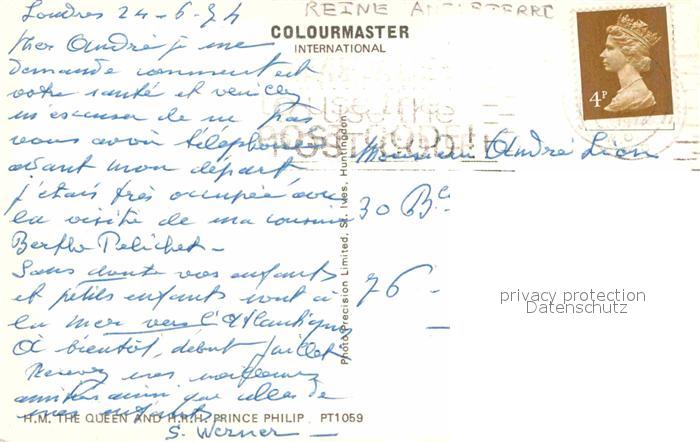 Londres 24-6-74
REINE ANGLETERRE
COLOURMASTER
INTERNATIONAL
Cher André je me
demande comment est
votre santé et veuillez
m'excuser de ne pas
vous avoir téléphoner
avant mon départ
j'étais très occupée avec
la visite de ma cousine
Berthe Pelichet -
Sans doute vos enfants
et petits enfants vont à
la mer vers l'Atlantique
A bientôt, début Juillet
Recevez mes meilleures
amitiés ainsi que celles de
mes enfants
S. Werner -
4P
USE THE
POSTCODE
Monsieur André Lion
30 Bd
76 -
Photo Precision Limited, St. Ives, Huntingdon
privacy protection
Datenschutz
H.M. THE QUEEN AND H.R.H. PRINCE PHILIP PT1059